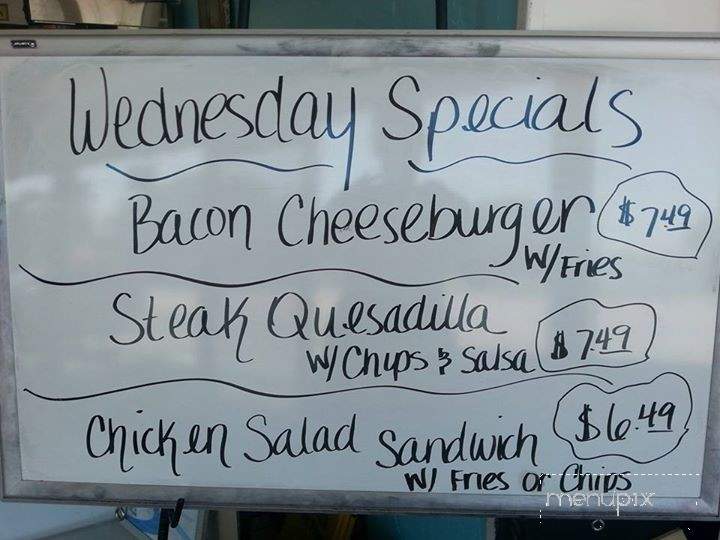 Wednesday Specials
Bacon Cheeseburger $7.49
W/Fries
Steak Quesadilla
W/Chips & Salsa $7.49
Chicken Salad Sandwich $6.49
W/ Fries or Chips
menupix